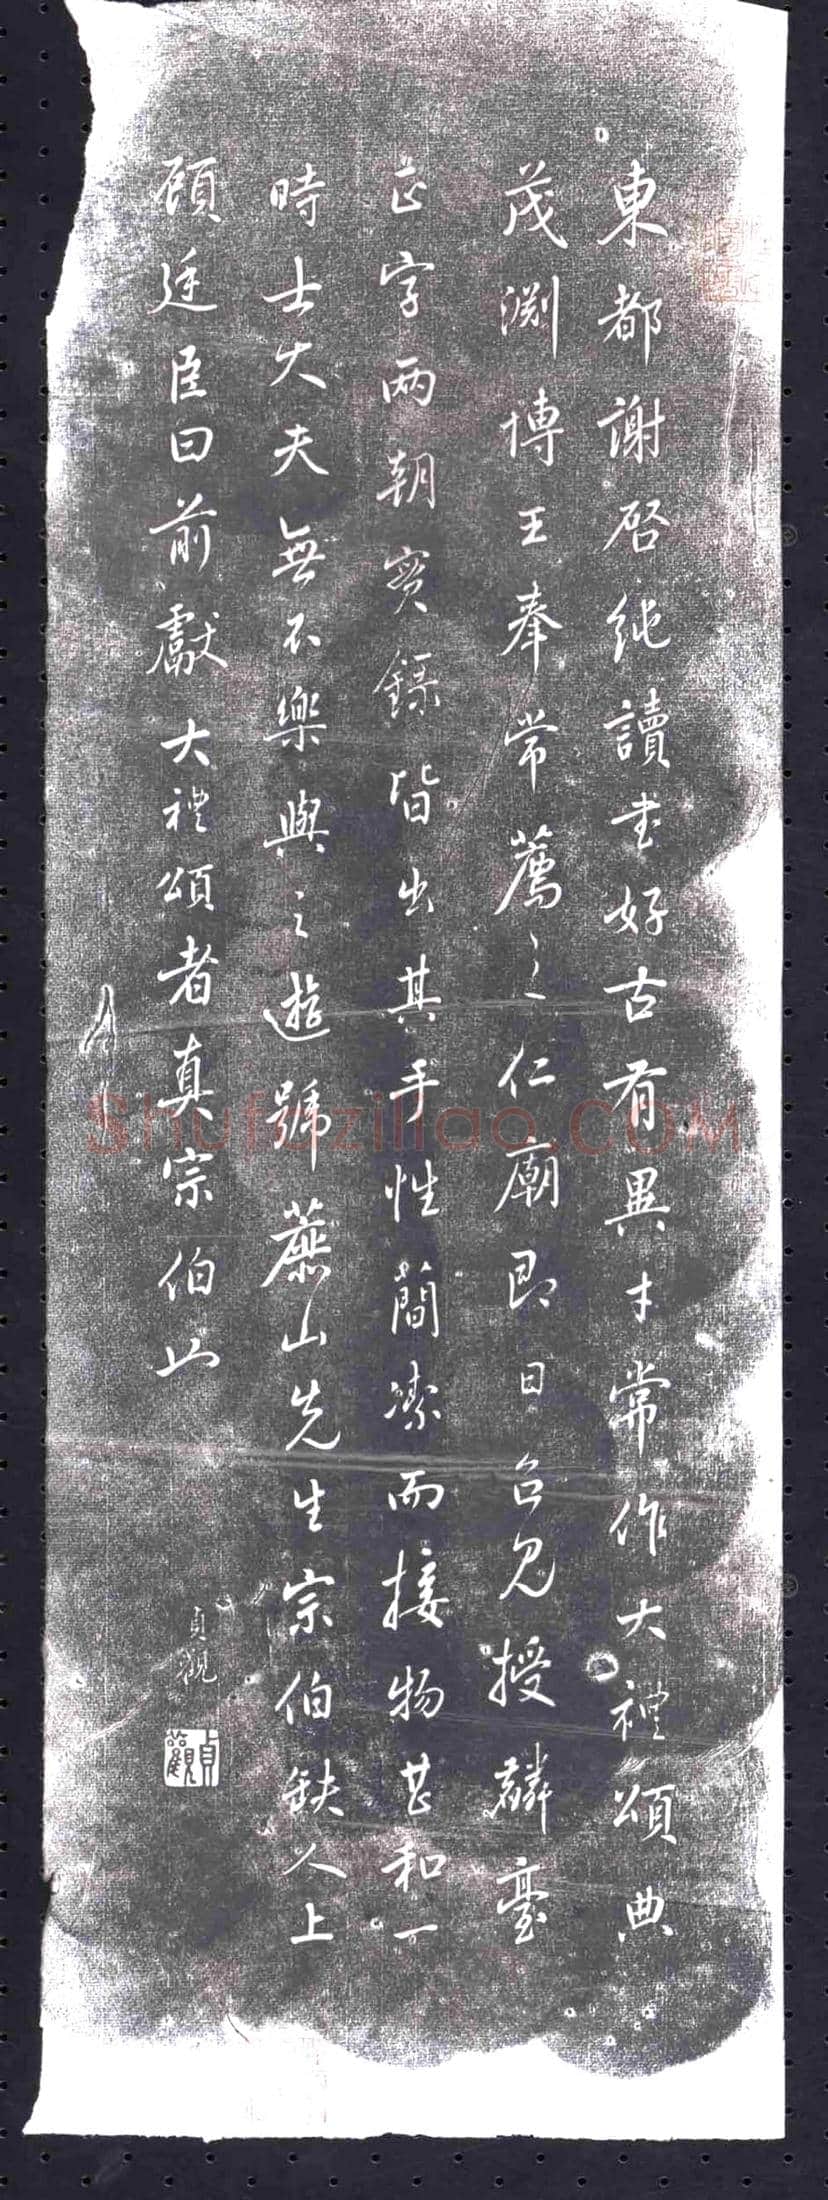 東都謝啓純讀書好古有異才常作大禮頌典
茂淵博王奉常薦之仁廟即日召見授麟臺
正字两朝實録皆出其手性簡潔而接物甚和一
時士大夫無不樂與之遊號藨山先生宗伯缺人上
顧廷臣曰前獻大禮頌者真宗伯也
貞觀
貞觀
Shufaziliao.COM